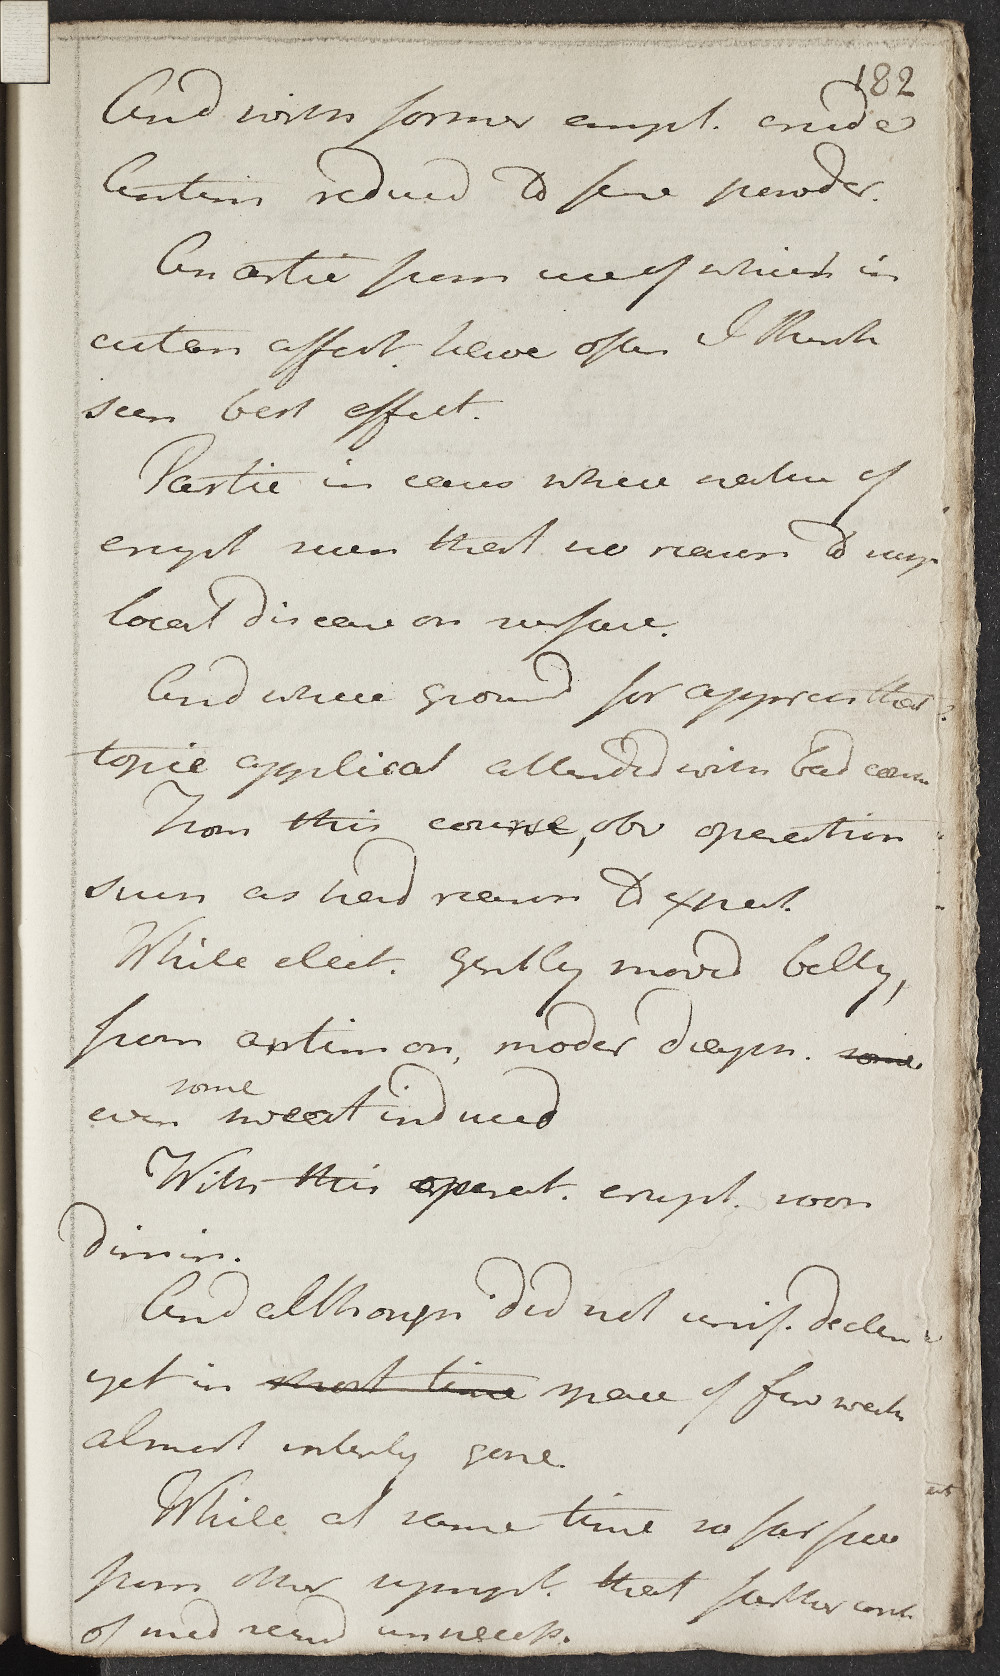 182
And with former empl. crude
Antim reduced to fine powder.
An artic from use of which in
cutan affect. have often I think
seen best effect.
Partic in cases where nature of
erupt such that no reason to susp
local disease on surface.
And where ground for appreh that
topic applicat attended with bad cons
From this course, obv operation
such as had reason to expect.
While elect. gently moved belly,
from antimon, moder diaph. some
even some sweat induced
With this operat. erupt. soon
dimin.
And although did not unif. declin
yet in short time space of few weeks
almost entirely gone.
While at same time so far free
from other sympt. that farther cont
of med seemd unnecess.